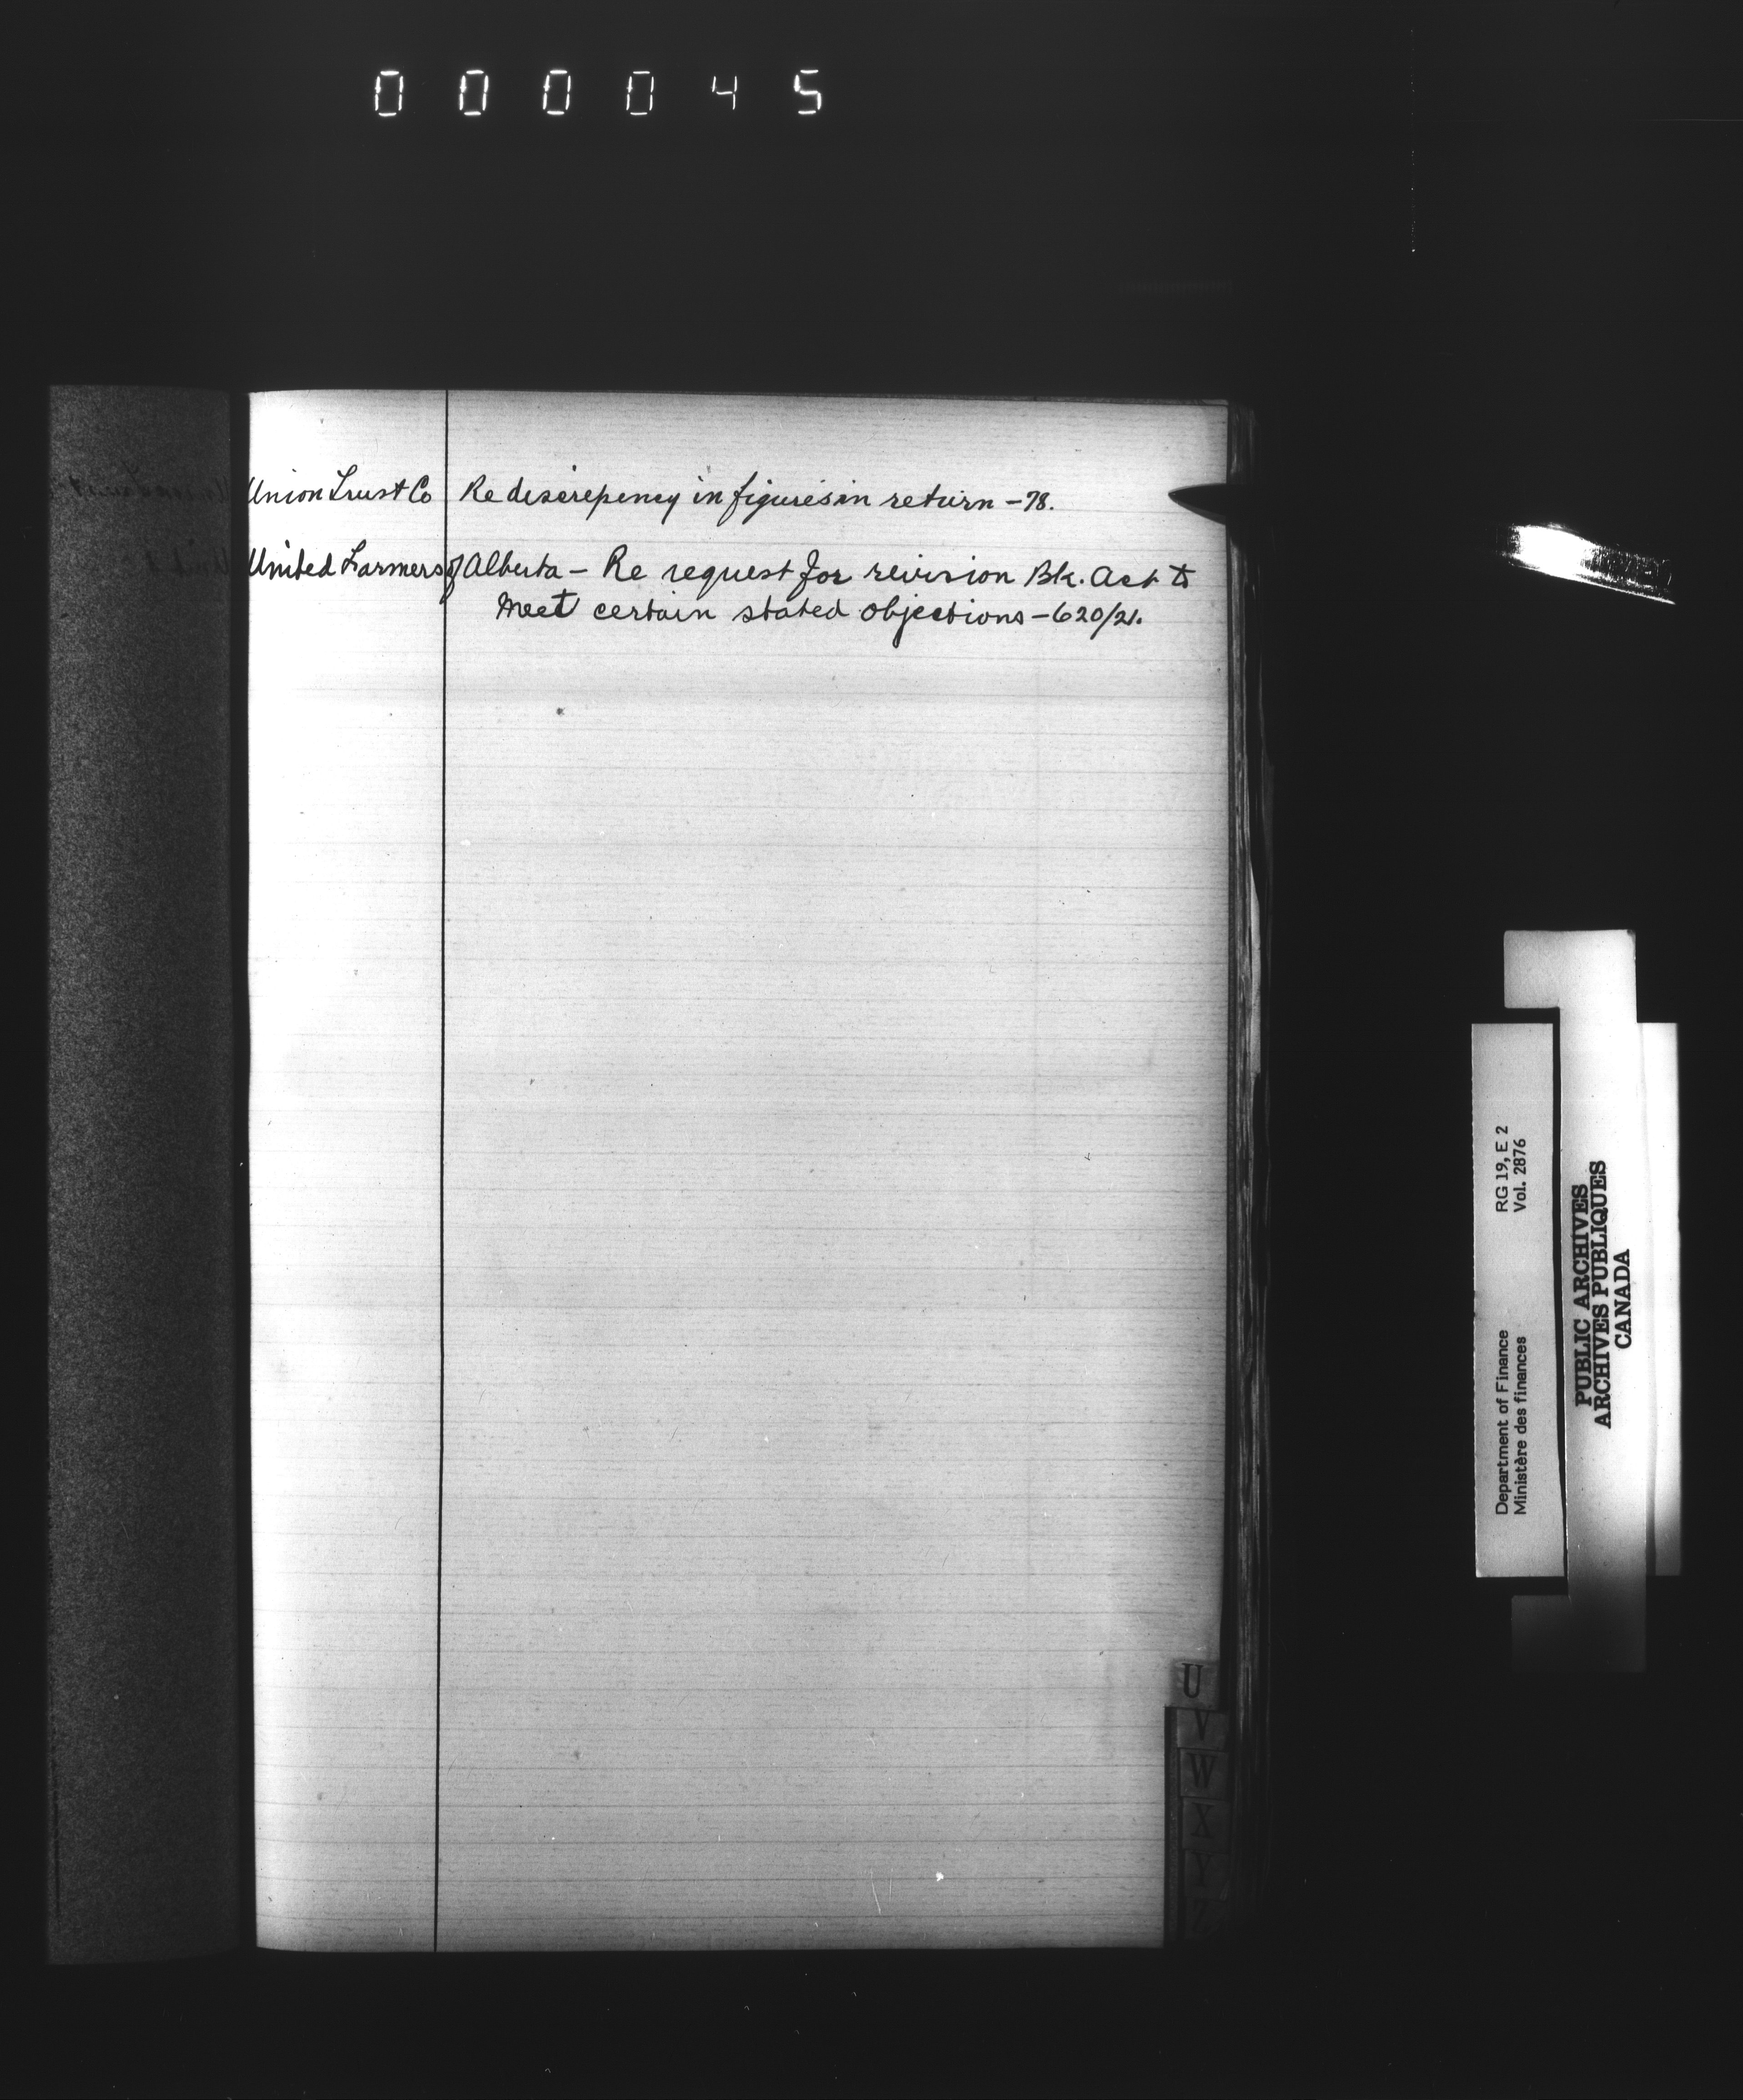 000045
Union Trust Co Re descrepency in figures in return – 78.
United Farmers of Alberta – Re request for revision Bk. Act to
meet certain stated objections – 620/21.
U
V
W
X
Y
Z
Department of Finance RG 19, E 2
Ministère des finances Vol. 2876
PUBLIC ARCHIVES
ARCHIVES PUBLIQUES
CANADA